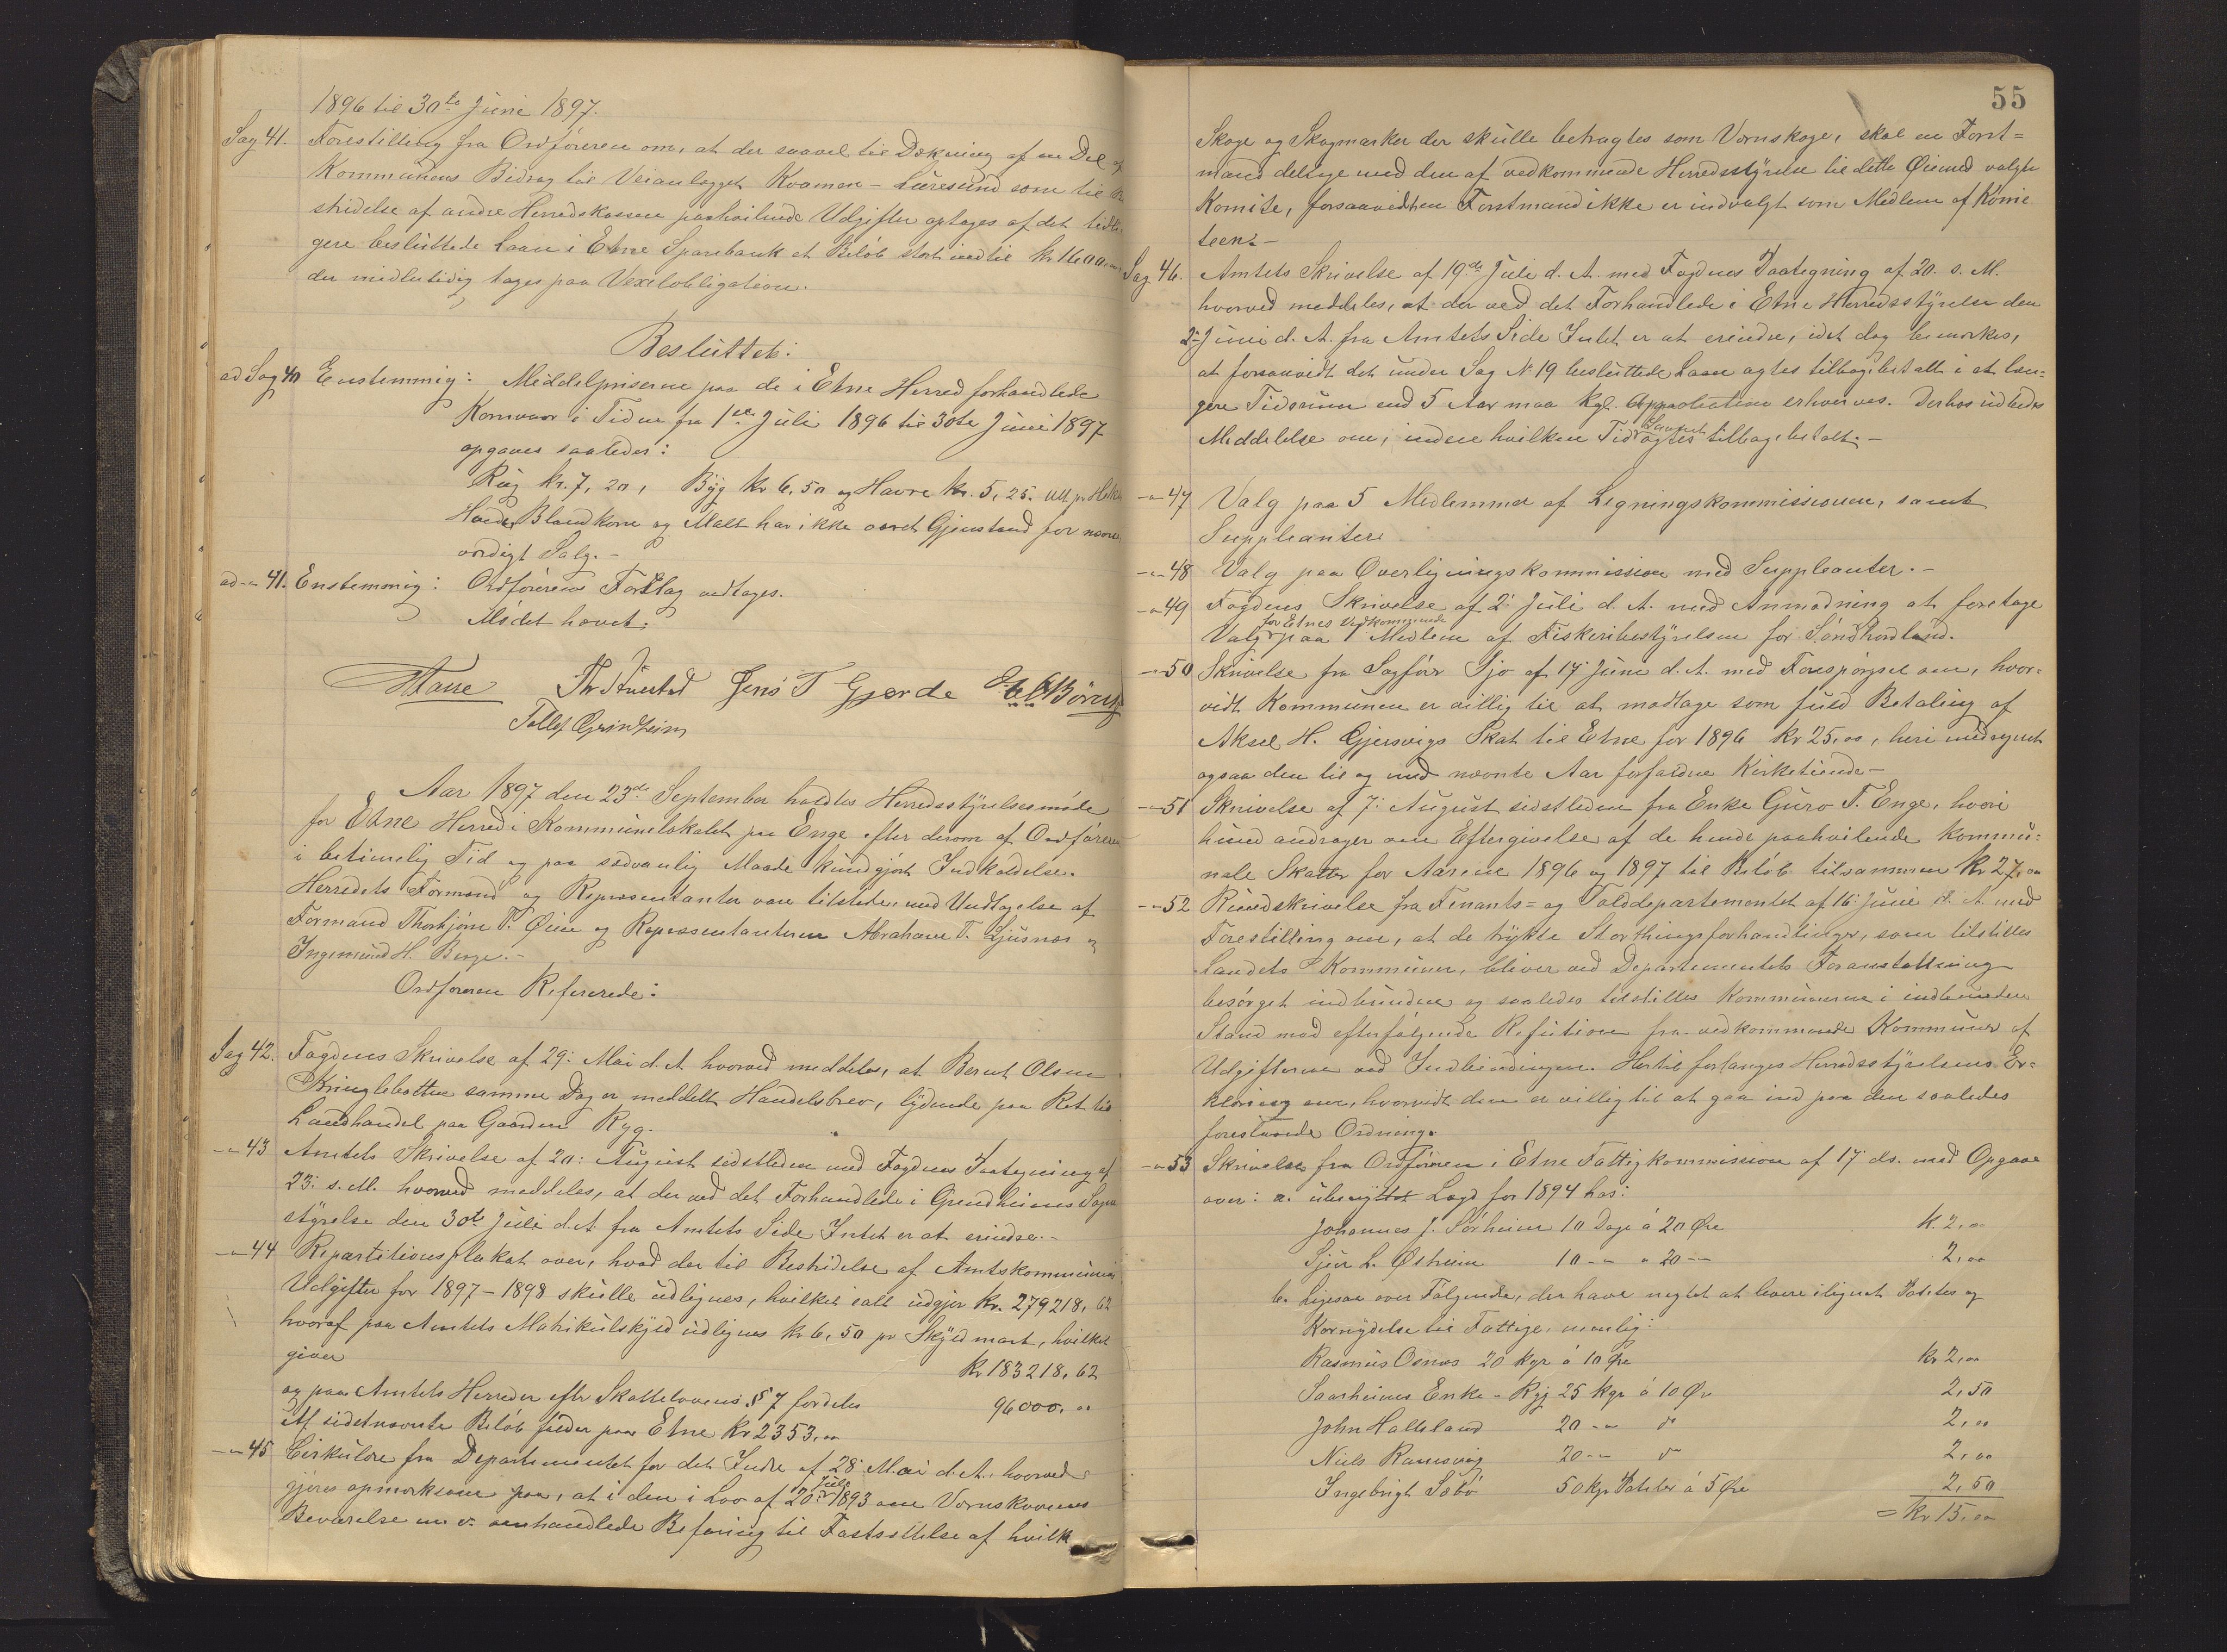 1896 til 30te Juni 1897.
Sag 41. Forestilling fra Ordføreren om, at der saavel til Dækning af en Del af
Kommunens Bidrag til Veianlægget Kvamen - Lüresund som til Be
stridelse af andre Herredskassen paahvilende Udgifter optages af det tidli
gere besluttede Laan i Etne Sparebank et Beløb stort indtil kr 1600.
der midlertidig tages paa Vexelobligation.
Besluttet:
ad Sag 40 Enstemmig: Middelpriserne paa de i Etne Herred forhandlede
Kornvarer i Tiden fra 1ste Juli 1896 til 30te Juni 1897
opgaves saaledes:
Rüg kr. 7,20, Byg kr 6,50 og Havre kr. 5,25. Alt pr Hekto
Hvede, Blandkorn og Malt har ikke været Gjenstand for nævne
værdigt Salg. -
ad -"- 41. Enstemmig: Ordførerens Forslag vedtages.
Mödet hævet.
Haue Thr Stuestad Jens T Gjerde O. B. Börretz
Tollef Grindheim
Aar 1897 den 23de September holdtes Herredsstyrelsesmöde
for Etne Herred i Kommunelokalet paa Enge efter derom af Ordføreren
i betimelig Tid og paa sædvanlig Maade kundgjort Indkaldelse.
Herredets Formænd og Repræsentanter vare tilstede med Undtagelse af
Formand Thorbjørn T. Øien og Repræsentanterne Abraham T. Ljusnæs og
Ingemund H. Berge. -
Ordføreren Refererede:
Sag 42. Fogdens Skrivelse af 29: Mai d. A. hvorved meddeles, at Bernt Olsen
Kringlebotten samme Dag er meddelt Handelsbrev, lydende paa Ret til
Landhandel paa Gaarden Ryg.
-"- 43 Amtets Skrivelse af 20: August sidstleden med Fogdens Paategning af
23: s. M. hvorved meddeles, at der ved det Forhandlede i Grindheims Sogne
styrelse den 30te Juli d. A. fra Amtets Side Intet er at erindre. -
-"- 44 Repartitionsplakat over, hvad der til Bestridelse af Amtskommunens
Udgifter for 1897 - 1898 skulle udlignes, hvilket ialt udgjør Kr. 279218,62
hvoraf paa Amtets Matrikulskyld udlignes kr 6,50 pr Skyldmark, hvilket
giver kr 183218,62
og paa Amtets Herreder efter Skattelovens § 7 fordeles 96000,00
Af sidstnævnte Beløb falder paa Etne Kr 2353,00
-"- 45 Cirkulære fra Departementet for det Indre af 28: Mai d. A. hvorved
gjøres opmærksom paa, at i den i Lov af 20: Juli 1893 om Værnskovens
Bevarelse m. v. omhandlede Befaring til Fastsættelse af hvilke
55
Skoge og Skogmarker der skulle betragtes som Værnskoge, skal en Forst=
mand deltage med den af vedkommende Herredsstyrelse til dette Øiemed valgte
Komite, forsaavidt en Forstmand ikke er indvalgt som Medlem af Komi
teen. -
Sag 46. Amtets Skrivelse af 19de Juli d. A. med Fogdens Paategning af 20. s. M.
hvorved meddeles, at der ved det Forhandlede i Etne Herredsstyrelse den
2: Juni d. A. fra Amtets Side Intet er at erindre, idet dog bemærkes,
at forsaavidt det under Sag N 19 besluttede Laan agtes tilbagebetalt i et læn=
gere Tidsrum end 5 Aar maa Kgl. Approbation erhverves. Derhos udbedes
Meddelelse om, inden hvilken Tid Laanet agtes tilbagebetalt. -
-"- 47 Valg paa 5 Medlemmer af Ligningskommissionen, samt
Suppleanter.
-"- 48 Valg paa Overligningskommission med Suppleanter. -
-"- 49 Fogdens Skrivelse af 2: Juli d. A. med Anmodning at foretage
Valg for Etnes Vedkommende paa 1 Medlem af Fiskeribestyrelsen for Söndhordland.
-"- 50 Skrivelse fra Sagfør Sjo af 17 Juni d. A. med Forespørgsel om, hvor=
vidt Kommunen er villig til at modtage som fuld Betaling af
Aksel H. Gjersvigs Skat til Etne for 1896 kr 25,00, heri medregnet
ogsaa den til og med nævnte Aar forfaldne Kirketiende -
-"- 51 Skrivelse af 7: August sidstleden fra Enke Guro T. Enge, hvori
hun andrager om Eftergivelse af de hende paahvilende kommu=
nale Skatter for Aarene 1896 og 1897 til Beløb tilsammen Kr 27,00
-"- 52 Rundskrivelse fra Finants= og Tolddepartementet af 16: Juni d. A. med
Forestilling om, at de trykte Storthingsforhandlinger, som tilstilles
Landets Kommuner, bliver ved Departementets Foranstaltning
besørget indbundne og saaledes tilstilles Kommunerne i indbunden
Stand mod efterfølgende Refusion fra vedkommende Kommuner af
Udgifterne ved Indbindingen. Hertil forlanges Herredsstyrelsens Er=
klæring om, hvorvidt den er villig til at gaa ind paa den saaledes
foreslaaede Ordning.
-"- 53 Skrivelse fra Ordføreren i Etne Fattigkommission af 17 ds. med Opgave
over: a. ubenyttet Lægd for 1894 hos:
Johannes J. Sørheim 10 Dage á 20 Øre k. 2,00
Sjur L. Østreim 10 -"- " 20 -"- 2,00
b. Ligesaa over Følgende, der have negtet at levere ilignet Potetes og
Kornydelse til Fattige, nemlig:
Rasmus Osnæs 20 kgr á 10 Øre kr 2,00
Saarheims Enke - Byg 25 kgr á 10 Ør 2,50
John Halleland 20 -"- do 2,00
Niels Ramsvig 20 -"- do 2,00
Ingebrigt Sæbö 50 kgr Poteter á 5 Øre 2,50
= kr 15,00